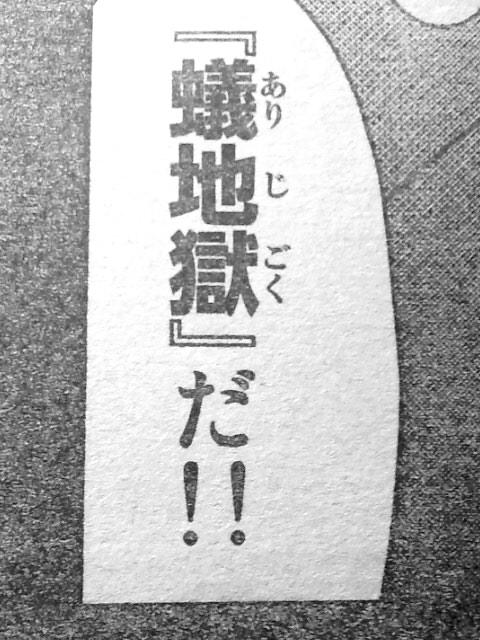 『蟻地獄』だ!!
あり じ ごく